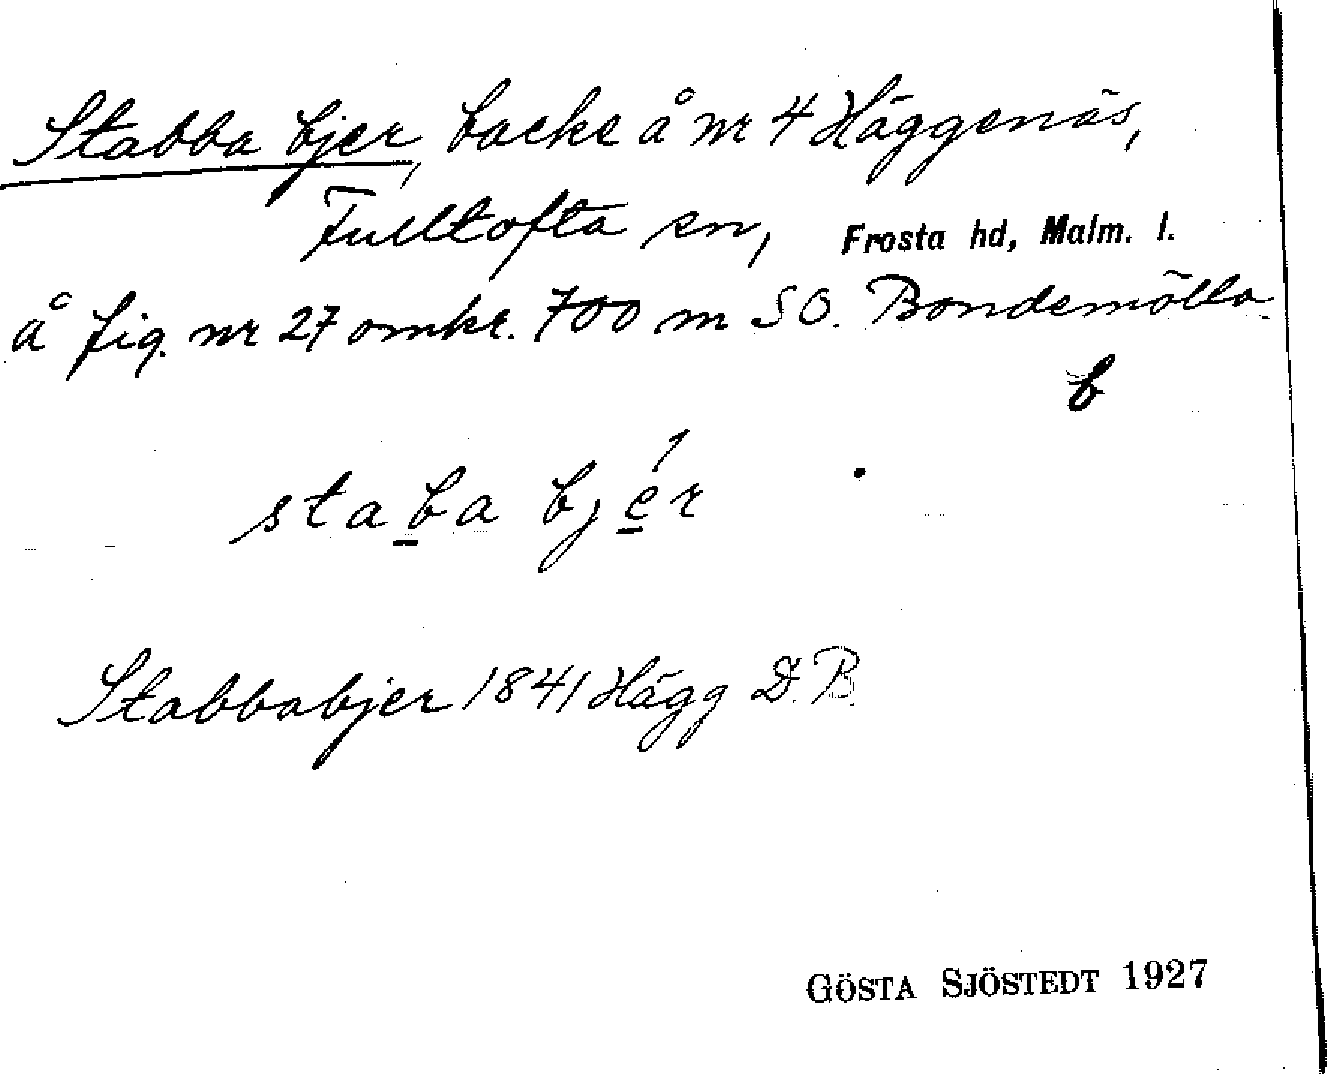 Stabba bjer, backe å nr 4 Häggenäs,
Fulltofta sn, Frosta hd, Malm. l.
å fig. nr 27 omkr. 700 m SO. Bondemölla
b
staba bjér
Stabbabjer 1841 Hägg D.B.
GÖSTA SJÖSTEDT 1927